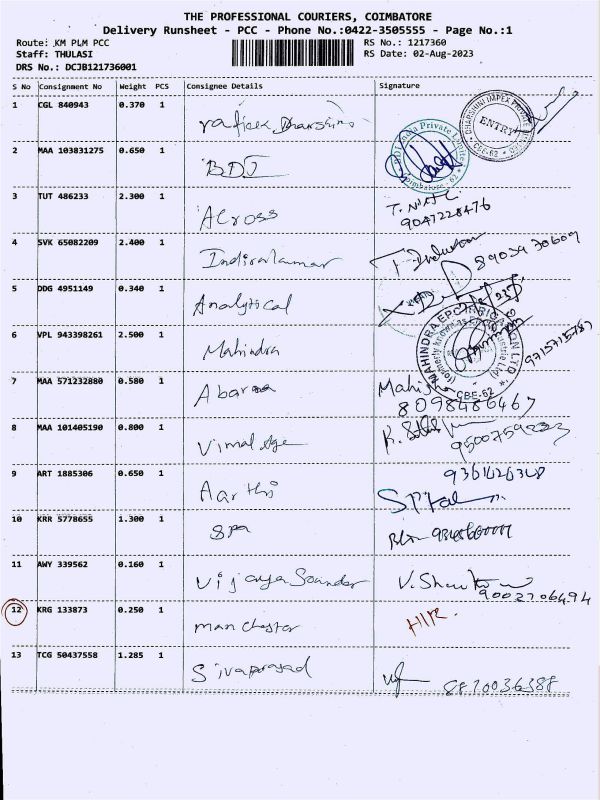 THE PROFESSIONAL COURIERS, COIMBATORE
Delivery Runsheet - PCC - Phone No.:0422-3505555 - Page No.:1
Route: KM PLM PCC
RS No.: 1217360
Staff: THULASI
RS Date: 02-Aug-2023
DRS No.: DCJB121736001
S No Consignment No Weight PCS Consignee Details Signature
1 CGL 840943 0.370 1
ENTRY
CBE-62
2 MAA 103831275 0.650 1 BDI
India Private Limited
Coimbatore - 62
3 TUT 486233 2.300 1 Across
9047228476
4 SVK 65082209 2.400 1 Indirakumar
8903930609
5 DDG 4951149 0.340 1 Analytical
6 VPL 943398261 2.500 1 Mahindra
MAHINDRA EPC IRRIGATION LTD
(formerly known as
CBE-62
9715715787
7 MAA 571232880 0.580 1
8098486467
8 MAA 101405190 0.800 1
9 ART 1885306 0.650 1 Aarthi
10 KRR 5778655 1.300 1 Spa
11 AWY 339562 0.160 1
9002706494
12 KRG 133873 0.250 1 Manchester
13 TCG 50437558 1.285 1 Sivaprasad
8870036388